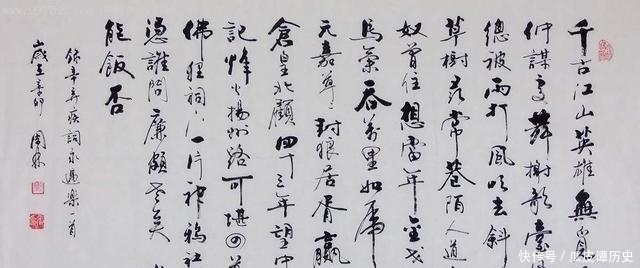 千古江山英雄無覓
仲謀處舞榭歌臺
總被雨打風吹去斜
草樹尋常巷陌人道
奴曾住想當年金戈
馬氣吞萬里如虎
元嘉草草封狼居胥贏
倉皇北顧四十三年望中
記烽火揚州路可堪回
佛狸祠下一片神鴉社
憑誰問廉頗老矣
能飯否
錄辛棄疾詞永遇樂一首
歲在辛卯 周
快传号/瓜皮谭历史